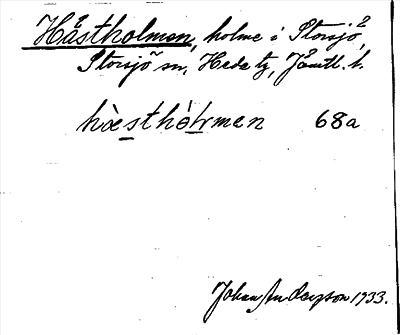 Håstholmen, holme i Storsjö,
Storsjö sn, Hede tg, Jämtl. l.
hàesthòlmen 68a
Johan Anderzson 1933.